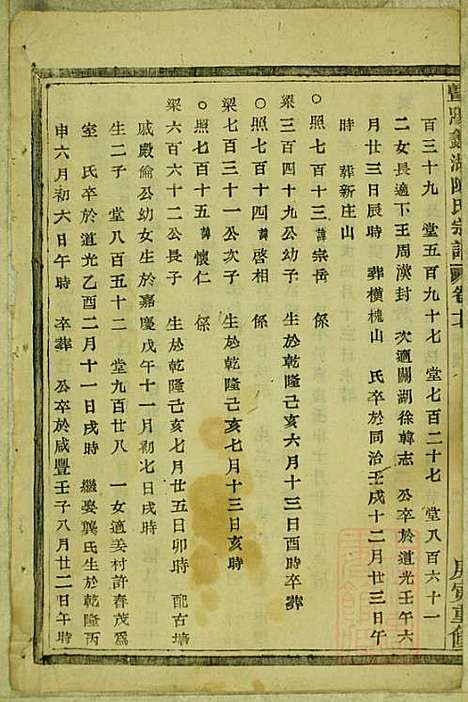 暨陽鑑湖陳氏宗譜 卷十 庚寅重修
百三十九　堂五百九十七　堂七百二十七　堂八百六十一
二女長適下王周漢封　次適關湖徐韓志　公卒於道光壬午六
月廿三日辰時　葬橫槐山　氏卒於同治壬戌十二月廿三日午
時　葬新庄山
○照七百十三諱宗岳　係
梁三百四十九公幼子　生於乾隆己亥六月十三日酉時卒葬
○照七百十四諱啓相　係
梁七百三十一公次子　生於乾隆己亥七月十三日亥時
○照七百十五諱懷仁　係
梁六百六十二公長子　生於乾隆己亥七月廿五日卯時　配古塘
戚殿倫公幼女生於嘉慶戊午十一月初七日戌時
生二子　堂八百五十二　堂九百廿八　一女適姜村許春茂爲
室　氏卒於道光乙酉二月十一日戌時　繼娶龔氏生於乾隆丙
申六月初六日午時　卒葬　公卒於咸豐壬子八月廿二日午時